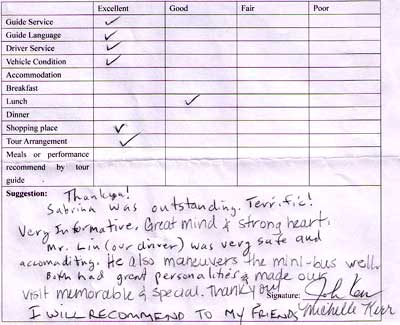 Excellent Good Fair Poor
Guide Service ✓
Guide Language ✓
Driver Service ✓
Vehicle Condition ✓
Accommodation
Breakfast
Lunch ✓
Dinner
Shopping place ✓
Tour Arrangement ✓
Meals or performance
recommend by tour
guide
Suggestion: Thankyou!
Sabrina was outstanding. Terrific!
Very Informative, Great mind & strong heart.
Mr. Lin (our driver) was very safe and
accomaditing. He also maneuvers the mini-bus well.
Both had great personalities & made our
visit memorable & special. Thank you!
Signature: John Kerr
I WILL RECOMMEND TO MY FRIENDS Michelle Kerr